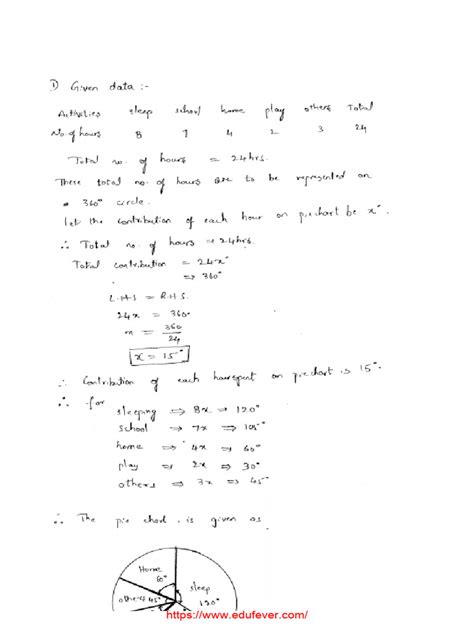 ① Given data :-
Activities sleep school home play others Total
No. of hours 8 7 4 2 3 24
Total no. of hours = 24hrs.
These total no. of hours are to be represented on
a 360° circle.
let the contribution of each hour on piechart be x°.
∴ Total no. of hours = 24hrs.
Total contribution = 24x°
⇒ 360°
L.H.S = R.H.S.
24x = 360°
x = 360/24
x = 15°
∴ Contribution of each hour spent on piechart is 15°.
∴ for
sleeping ⇒ 8x ⇒ 120°
school ⇒ 7x ⇒ 105°
home ⇒ 4x ⇒ 60°
play ⇒ 2x ⇒ 30°
others ⇒ 3x ⇒ 45°
∴ The pie chart is given as
Home
60°
sleep
others 45°
120°
https://www.edufever.com/